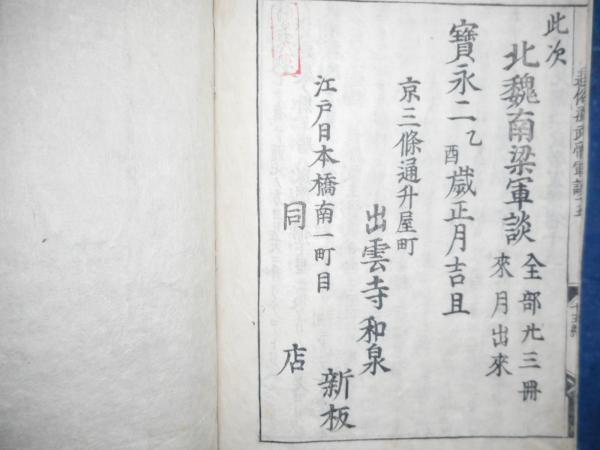 此次
北魏南梁軍談 全部九三冊 來月出來
寶永二乙酉歲正月吉旦
京三條通升屋町
出雲寺和泉
江戸日本橋南一町目
同店
新板